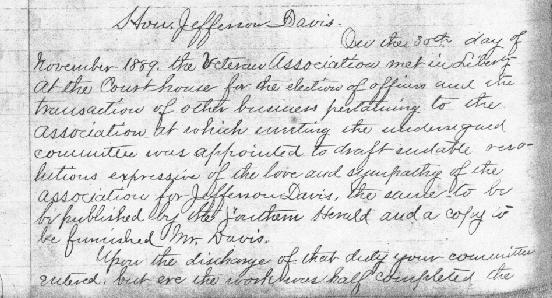 Hon. Jefferson Davis.
On the 30th day of
November 1889, the Veteran Association met in Liberty
at the Court house for the election of officers and the
transaction of other business pertaining to the
Association at which meeting the undersigned
committee was appointed to draft suitable reso-
lutions expressive of the love and sympathy of the
association for Jefferson Davis, the same to be
be published by the Southern Herald and a copy to
be furnished Mr. Davis.
Upon the discharge of that duty your committee
entered, but ere the work was half completed the